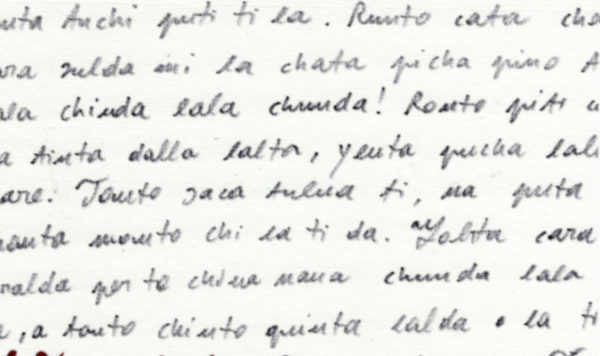 nta Anchi puti ti la. Runto cata cha
ara sulda mi la chata picha pino A
ala chinda lala chunda! Ronto piti
a tinta dalla lalta, yenta pucha lal
are. Tonto saca tulna ti, na puta
nanta monto chi la ti da. Lolita cara
ralda per to china nana chunda lala
a, a tonto chinto quinta lalda o la ti